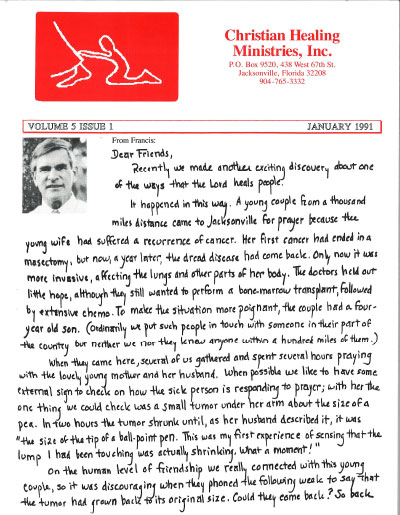 Christian Healing
Ministries, Inc.
P.O. Box 9520, 438 West 67th St.
Jacksonville, Florida 32208
904-765-3332
VOLUME 5 ISSUE 1 JANUARY 1991
From Francis:
Dear Friends,
Recently we made another exciting discovery about one
of the ways that the Lord heals people.
It happened in this way. A young couple from a thousand
miles distance came to Jacksonville for prayer because the
young wife had suffered a recurrence of cancer. Her first cancer had ended in a
masectomy, but now, a year later, the dread disease had come back. Only now it was
more invasive, affecting the lungs and other parts of her body. The doctors held out
little hope, although they still wanted to perform a bone-marrow transplant, followed
by extensive chemo. To make the situation more poignant, the couple had a four-
year old son. (Ordinarily we put such people in touch with someone in their part of
the country but neither we nor they knew anyone within a hundred miles of them.)
When they came here, several of us gathered and spent several hours praying
with the lovely young mother and her husband. When possible we like to have some
external sign to check on how the sick person is responding to prayer; with her the
one thing we could check was a small tumor under her arm about the size of a
pea. In two hours the tumor shrunk until, as her husband described it, it was
"the size of the tip of a ball-point pen. This was my first experience of sensing that the
lump I had been touching was actually shrinking. What a moment!"
On the human level of friendship we really connected with this young
couple, so it was discouraging when they phoned the following week to say that
the tumor had grown back to its original size. Could they come back? So back